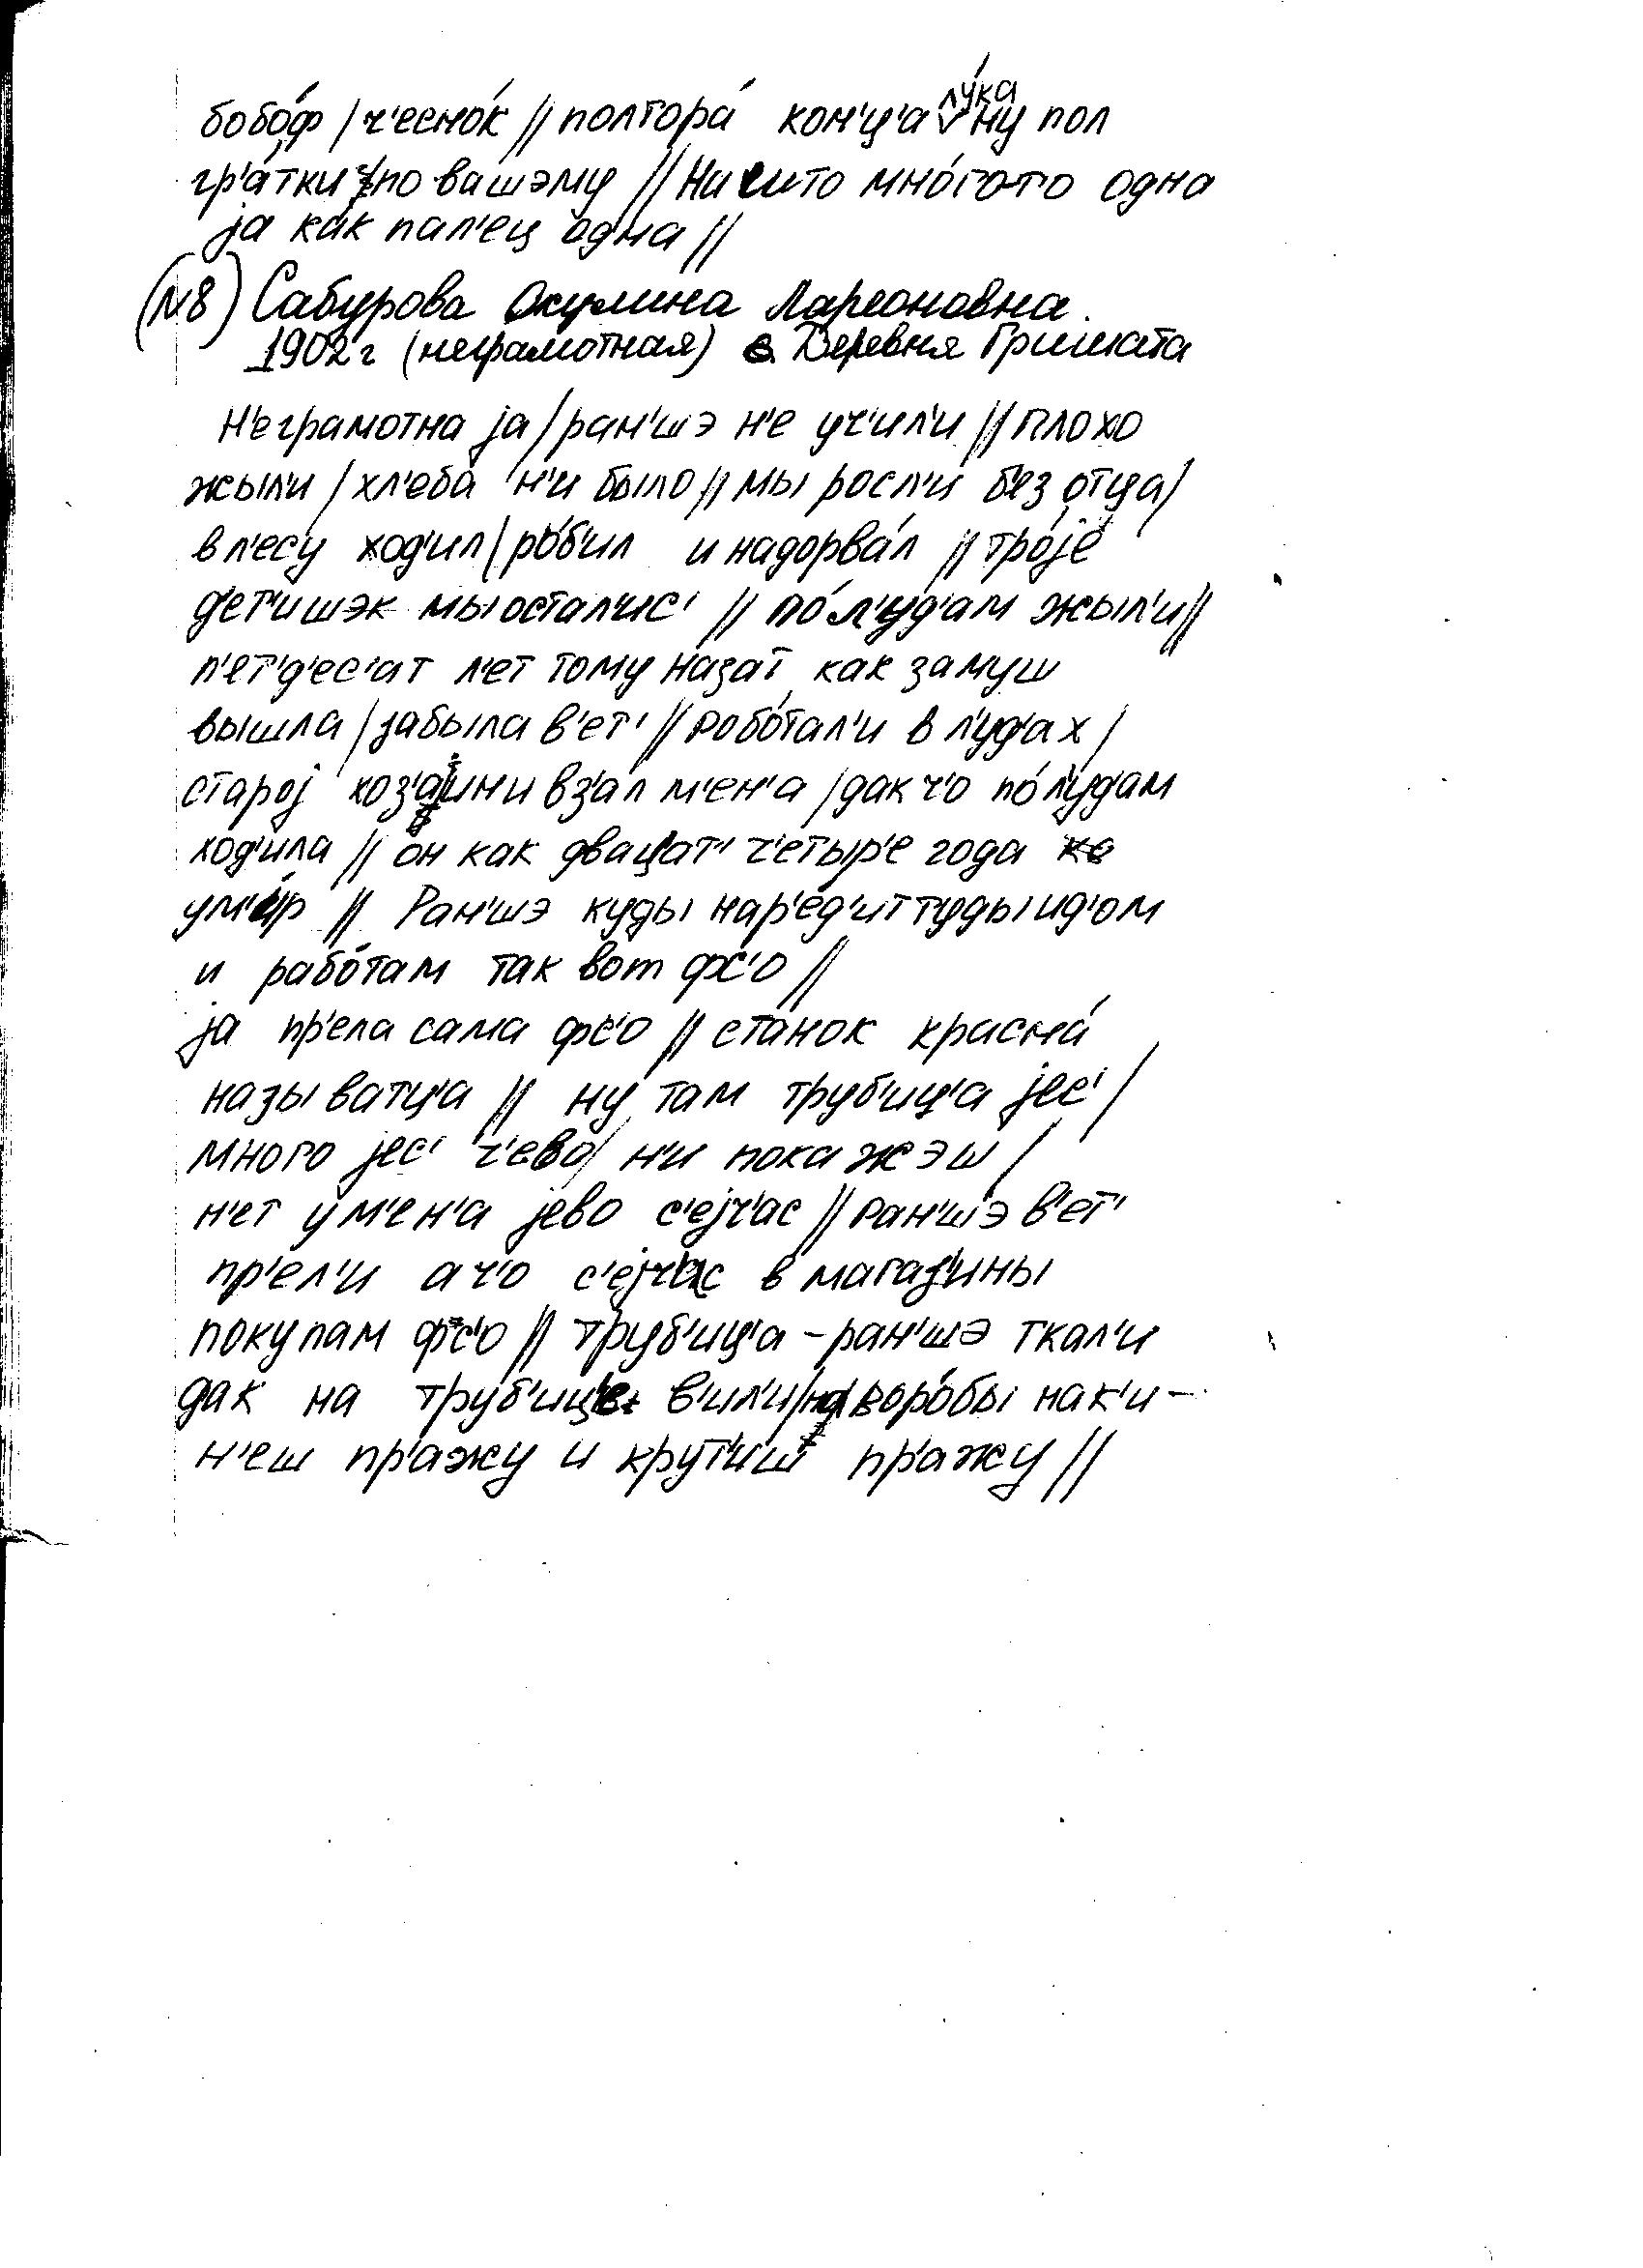 бобо́ф / ч'есно́к // полтора́ кон'ц'а лу́ка ну пол
гр'а́тки по вашэму // Ни што мно́гото одна
jа как пал'ец одна //
(№8) Сабурова Окулина Лареоновна.
1902г (неграмотная) Деревня Гришата
Н'еграмотна jа / ран'шэ н'е уч'ил'и // плохо
жыл'и / хл'еба н'и было // мы росл'и б'ез отца /
в л'есу ход'ил / ро́б'ил и надорва́л // тро́jе
д'ет'ишэк мы остал'ис' // по́ л'уд'ам жыл'и //
п'ет'д'ес'ат л'ет тому назат как замуш
вышла / забыла в'ет' // робо́тал'и в л'уд'ах /
староj хоз'аjин и вз'ал м'ен'а / дак ч'о по́ л'уд'ам
ход'ила // он как двацат' ч'етыр'е года
ум'ер // Ран'шэ куды нар'ед'ит туды ид'ом
и рабо́там так вот фс'о //
jа пр'ела сама фс'о // станок красна́
называтца // ну там труб'иц'а jес' /
много jес' ч'ево / н'и покажэш /
н'ет у м'ен'а jево с'еjч'ас // ран'шэ в'ет'
пр'ел'и а ч'о с'еjч'ас в магаз'ины
покупам фс'о // труб'иц'а - ран'шэ ткал'и
дак на труб'иц'е в'ил'и / на воро́бы нак'и-
н'еш пр'ажу и крут'иш пр'ажу //